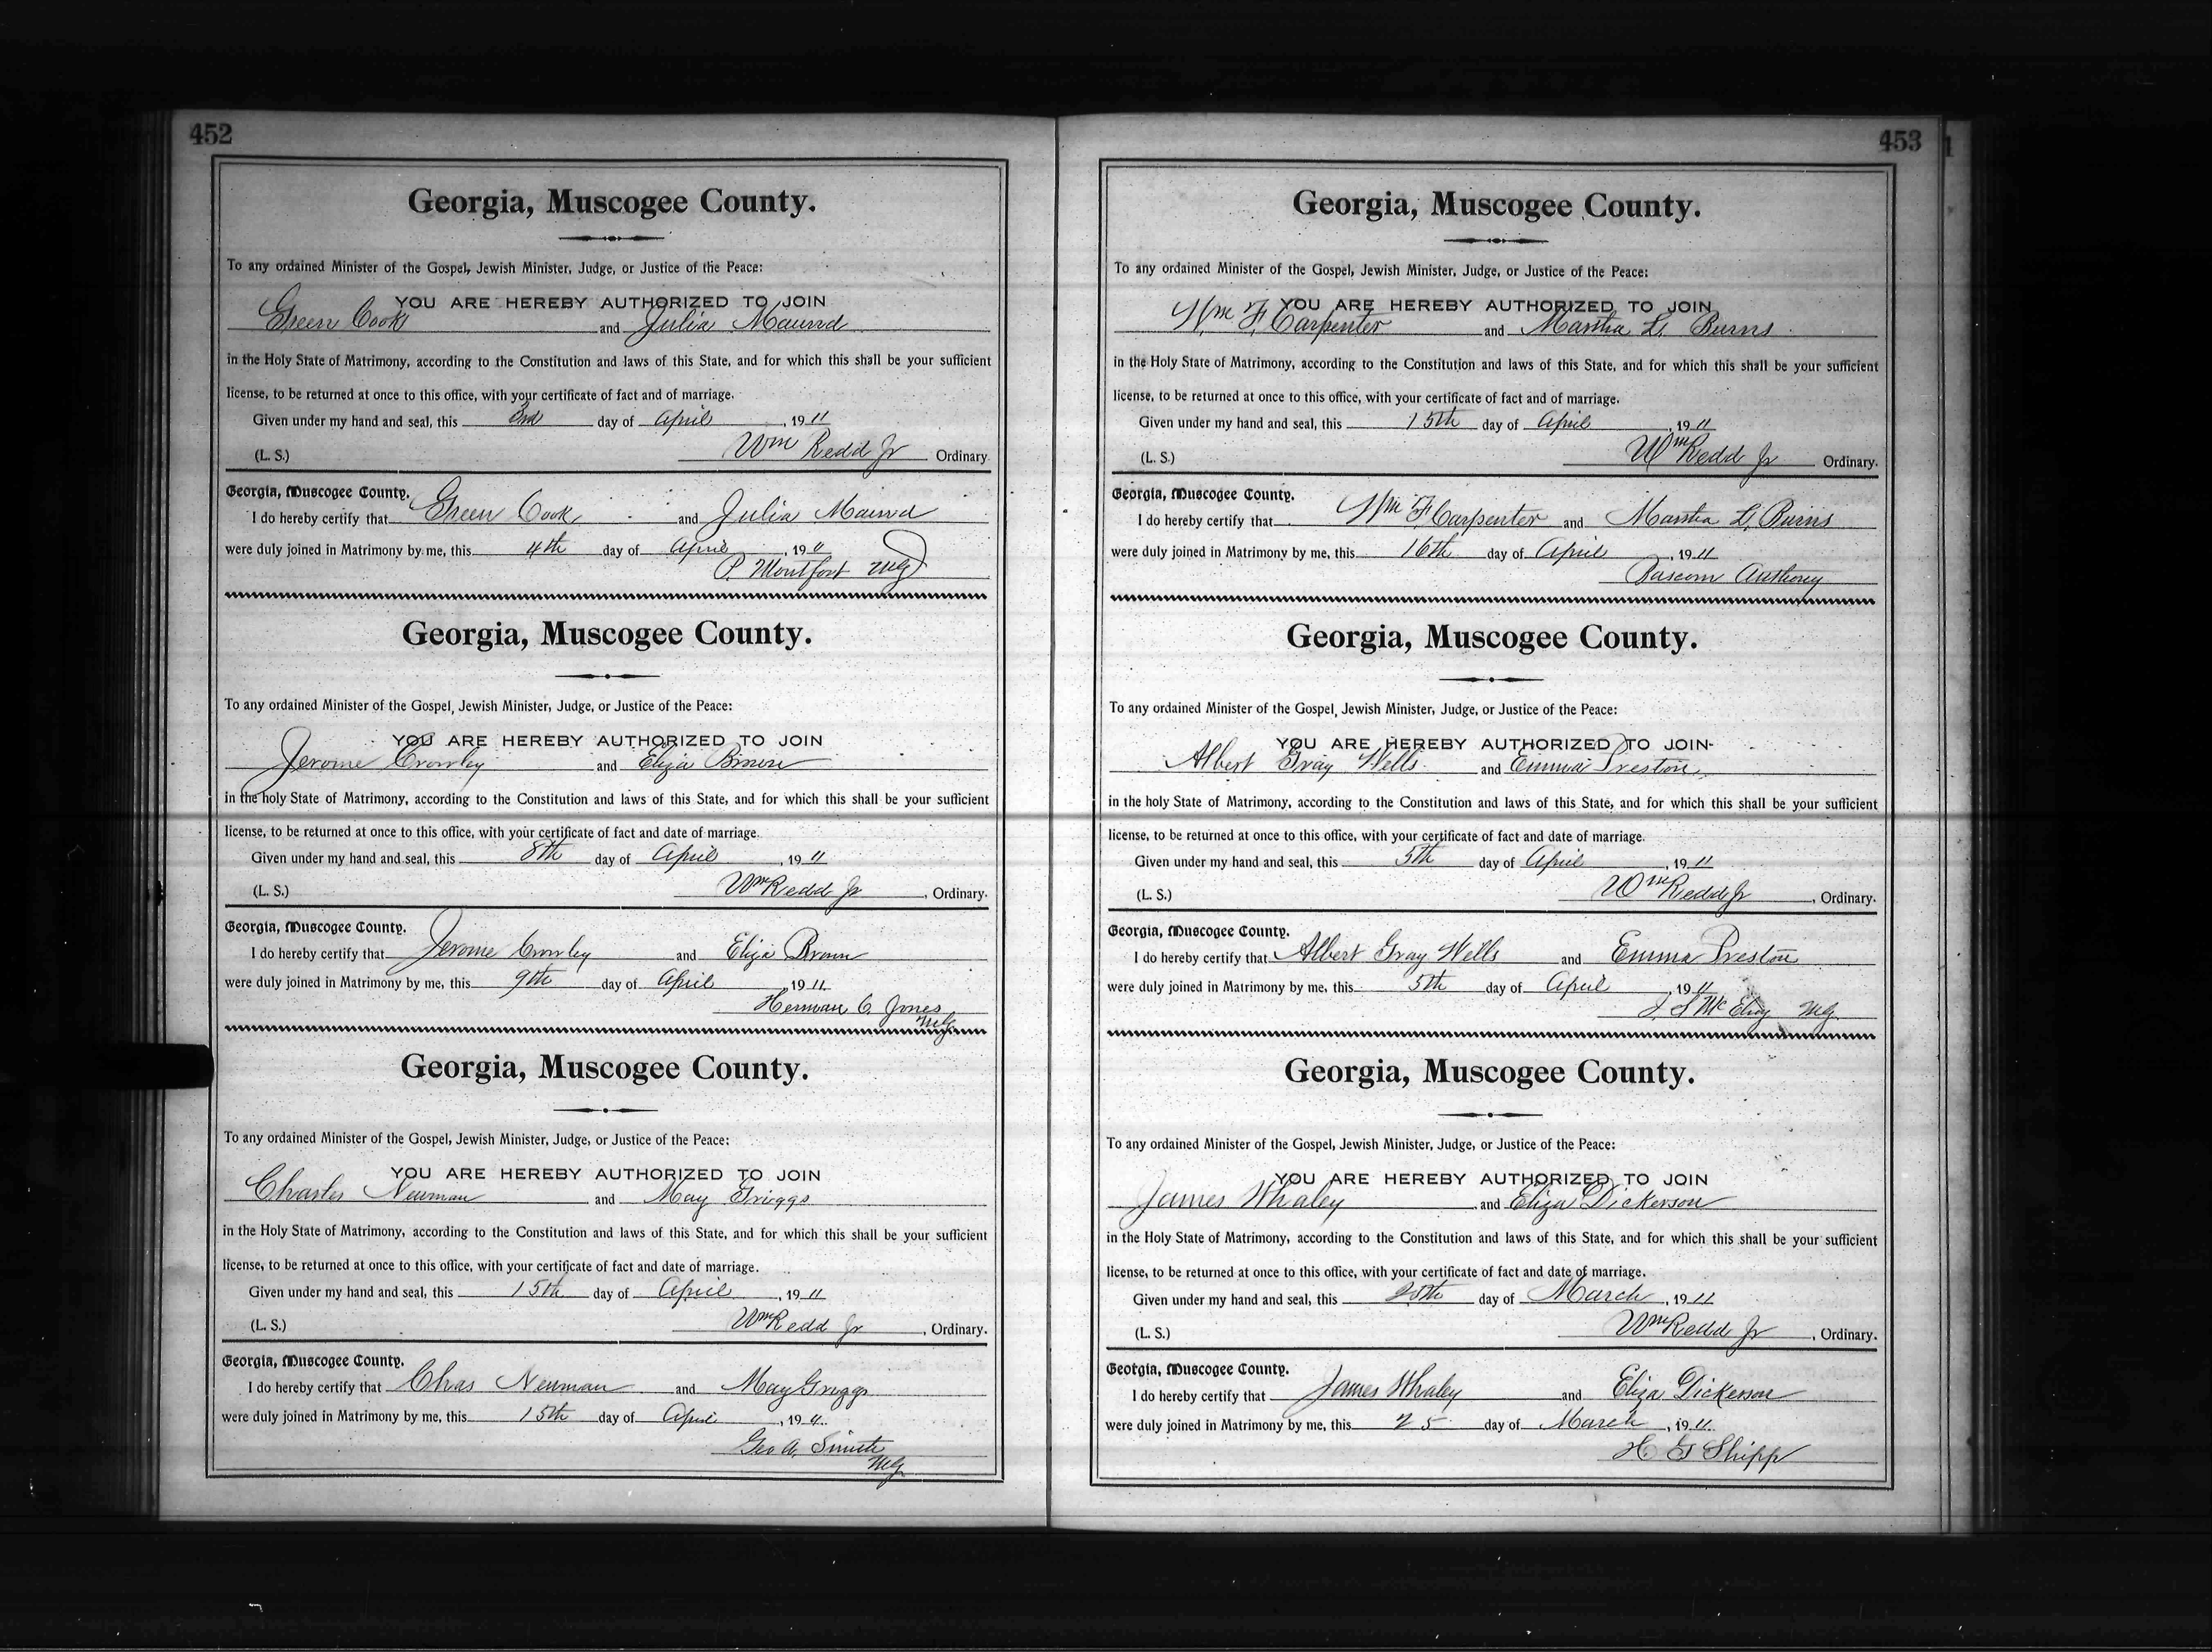 452
Georgia, Muscogee County.
To any ordained Minister of the Gospel, Jewish Minister, Judge, or Justice of the Peace:
YOU ARE HEREBY AUTHORIZED TO JOIN
Green Cook and Julia Maund
in the Holy State of Matrimony, according to the Constitution and laws of this State, and for which this shall be your sufficient
license, to be returned at once to this office, with your certificate of fact and of marriage.
Given under my hand and seal, this 3rd day of April, 1911
(L. S.) Wm Redd Jr Ordinary.
Georgia, Muscogee County.
I do hereby certify that Green Cook and Julia Maund
were duly joined in Matrimony by me, this 4th day of April, 1911
P. Montfort MG
Georgia, Muscogee County.
To any ordained Minister of the Gospel, Jewish Minister, Judge, or Justice of the Peace:
YOU ARE HEREBY AUTHORIZED TO JOIN
Jerome Crowley and Eliza Brown
in the holy State of Matrimony, according to the Constitution and laws of this State, and for which this shall be your sufficient
license, to be returned at once to this office, with your certificate of fact and date of marriage.
Given under my hand and seal, this 8th day of April, 1911
(L. S.) Wm Redd Jr, Ordinary.
Georgia, Muscogee County.
I do hereby certify that Jerome Crowley and Eliza Brown
were duly joined in Matrimony by me, this 9th day of April, 1911
Herman C. Jones
MG
Georgia, Muscogee County.
To any ordained Minister of the Gospel, Jewish Minister, Judge, or Justice of the Peace:
YOU ARE HEREBY AUTHORIZED TO JOIN
Charles Neuman and May Griggs
in the Holy State of Matrimony, according to the Constitution and laws of this State, and for which this shall be your sufficient
license, to be returned at once to this office, with your certificate of fact and date of marriage.
Given under my hand and seal, this 15th day of April, 1911
(L. S.) Wm Redd Jr, Ordinary.
Georgia, Muscogee County.
I do hereby certify that Chas Neuman and May Griggs
were duly joined in Matrimony by me, this 15th day of April, 1911.
Geo A. Smith
MG
453
Georgia, Muscogee County.
To any ordained Minister of the Gospel, Jewish Minister, Judge, or Justice of the Peace:
YOU ARE HEREBY AUTHORIZED TO JOIN
Wm F. Carpenter and Martha L. Burns
in the Holy State of Matrimony, according to the Constitution and laws of this State, and for which this shall be your sufficient
license, to be returned at once to this office, with your certificate of fact and of marriage.
Given under my hand and seal, this 15th day of April, 1911
(L. S.) Wm Redd Jr Ordinary.
Georgia, Muscogee County.
I do hereby certify that Wm F Carpenter and Martha L. Burns
were duly joined in Matrimony by me, this 16th day of April, 1911
Bascom Anthony
Georgia, Muscogee County.
To any ordained Minister of the Gospel, Jewish Minister, Judge, or Justice of the Peace:
YOU ARE HEREBY AUTHORIZED TO JOIN
Albert Gray Wells and Emma Preston
in the holy State of Matrimony, according to the Constitution and laws of this State, and for which this shall be your sufficient
license, to be returned at once to this office, with your certificate of fact and date of marriage.
Given under my hand and seal, this 5th day of April, 1911
(L. S.) Wm Redd Jr, Ordinary.
Georgia, Muscogee County.
I do hereby certify that Albert Gray Wells and Emma Preston
were duly joined in Matrimony by me, this 5th day of April, 1911
McElroy MG
Georgia, Muscogee County.
To any ordained Minister of the Gospel, Jewish Minister, Judge, or Justice of the Peace:
YOU ARE HEREBY AUTHORIZED TO JOIN
James Whaley and Eliza Dickerson
in the Holy State of Matrimony, according to the Constitution and laws of this State, and for which this shall be your sufficient
license, to be returned at once to this office, with your certificate of fact and date of marriage.
Given under my hand and seal, this day of March, 1911
(L. S.) Wm Redd Jr, Ordinary.
Georgia, Muscogee County.
I do hereby certify that James Whaley and Eliza Dickerson
were duly joined in Matrimony by me, this 25 day of March, 1911.
H Shipp